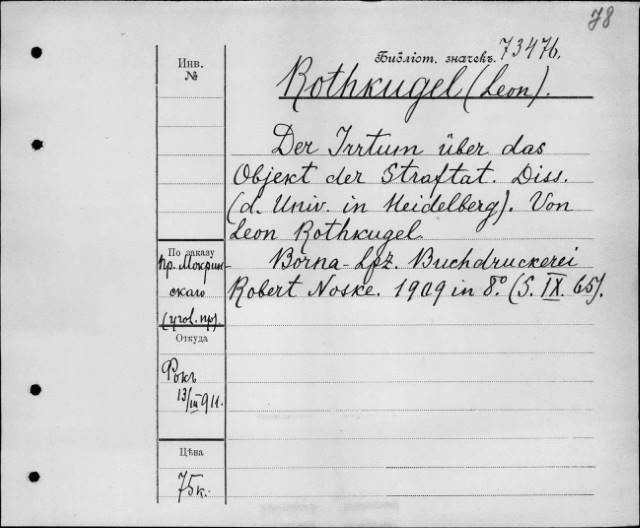 78
Инв.
№
Библіот. значекъ. 73476.
Rothkugel (Leon).
Der Irrtum über das
Objekt der Straftat. Diss.
(d. Univ. in Heidelberg). Von
Leon Rothkugel.
Borna-Lpz. Buchdruckerei
Robert Noske. 1909 in 8° (S. IX. 65).
По заказу
пр. Мокрин-
скаго
(угол. пр).
Откуда
Фокъ
13/III 911.
Цѣна
75к.